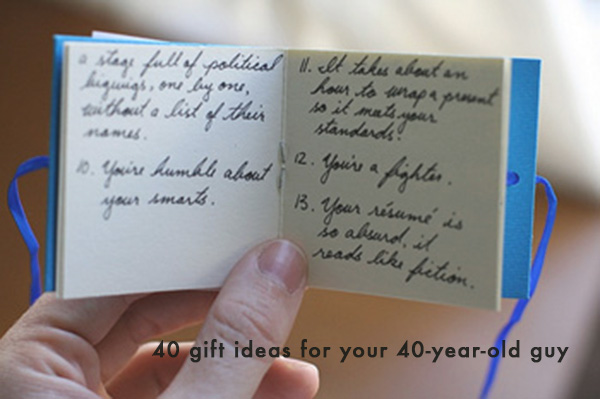 a stage full of political
bigwigs, one by one,
without a list of their
names.
10. You're humble about
your smarts.
11. It takes about an
hour to wrap a present
so it meets your
standards.
12. You're a fighter.
13. Your résumé is
so absurd, it
reads like fiction.
40 gift ideas for your 40-year-old guy